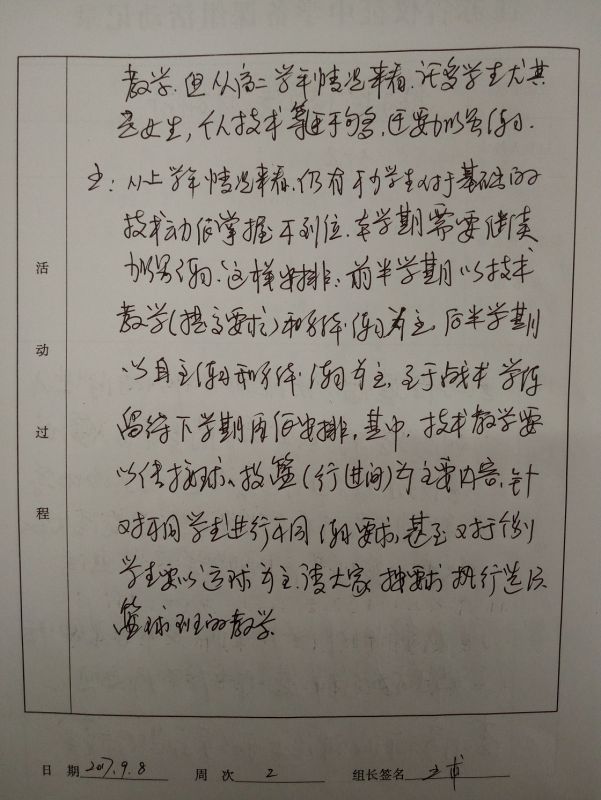 教学.但从高二学年情况来看.许多学生尤其
是女生,个人技术等还不够,还要加强练习.
王:从上学年情况来看,仍有千分学生对于基础的
技术动作掌握不到位.本学期需要继续
加强练习.这样安排:前半学期以技术
教学(提高要求)和分练习为主,后半学期
以自主练习和分练习为主,至于战术学练
留给下学期再作安排,其中,技术教学要
以传接球、投篮(行进间)为主要内容,针
对不同学生进行不同练习要求,甚至对于个别
学生要以运球为主.请大家按要求执行选项
篮球班的教学.
活动过程
日期 2017.9.8 周次 2 组长签名